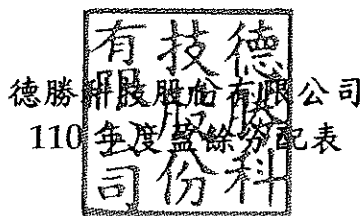 德勝科技股份有限公司
110 年度盈餘分配表
德勝科
技股份
有限公司